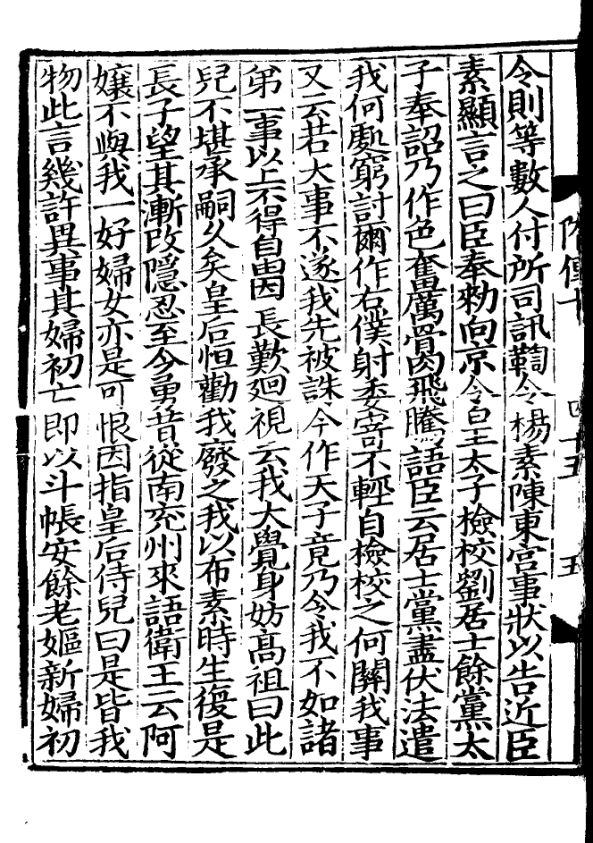 隋傳十 四十五 五
令則等數人付所司訊鞫令楊素陳東宮事狀以告近臣
素顯言之曰臣奉勑向京令皇太子檢校劉居士餘黨太
子奉詔乃作色奮厲骨肉飛騰語臣云居士黨盡伏法遣
我何處窮討爾作右僕射委寄不輕自檢校之何關我事
又云若大事不遂我先被誅今作天子竟乃令我不如諸
弟一事以上不得自由因長歎迴視云我大覺身妨高祖曰此
兒不堪承嗣久矣皇后恒勸我廢之我以布素時生復是
長子望其漸改隱忍至今勇昔從南兖州來語衛王云阿
孃不與我一好婦女亦是可恨因指皇后侍兒曰是皆我
物此言幾許異事其婦初亡即以斗帳安餘老嫗新婦初